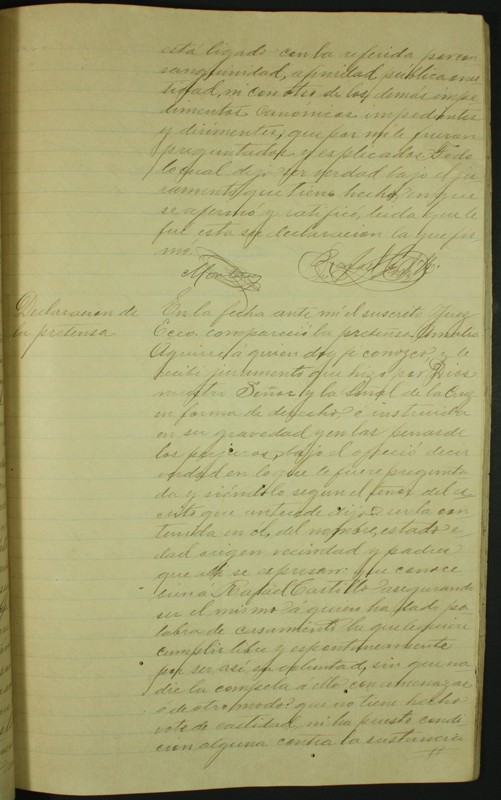 está ligado con la referida por con
sanguinidad, afinidad, pública ones
tidad, ni con otro de los demás impe
dimentos canónicos impedientes
y dirimentes, que por mi le fueron
preguntados y esplicados. Todo
lo cual dijo ser verdad bajo el ju
ramento que tiene hecho, en que
se afirmó y ratificó, leida que le
fué esta su declaracion la que fir
mó.
Rafael Castillo
Declaracion de
la pretensa
En la fecha ante mi el suscrito Juez
Ecco. compareció la pretensa Amalia
Aguirre á quien doy fe conozco, y le
recibí juramento que hizo por Dios
nuestro Señor y la Señal de la Cruz
en forma de derecho, é instruida
en su gravedad y en las penas de
los perjuros, bajo el ofreció decir
verdad en lo que le fuere pregunta
da y siéndolo segun el tenor del es
crito que antecede dijo: ser la con
tenida en él, del nombre, estado e
dad origen vecindad y padres
que se espresan: que conoce
bien á Rafael Castillo asegurando
ser el mismo á quien ha dado pa
labra de casamiento la que quiere
cumplir libre y espontaneamente
por ser así su voluntad, sin que na
die la compela á ello con amenazas
ó de otro modo: que no tiene hecho
voto de castidad, ni ha puesto condi
cion alguna contra la sustancia